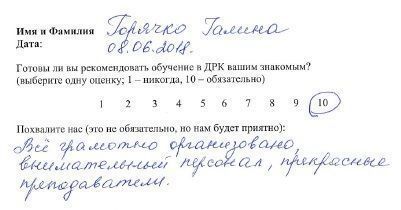 Имя и Фамилия Горячко Галина
Дата: 08.06.2018.
Готовы ли вы рекомендовать обучение в ДРК вашим знакомым?
(выберите одну оценку; 1 – никогда, 10 – обязательно)
1 2 3 4 5 6 7 8 9 10
Похвалите нас (это не обязательно, но нам будет приятно):
Всё грамотно организовано,
внимательный персонал, прекрасные
преподаватели.